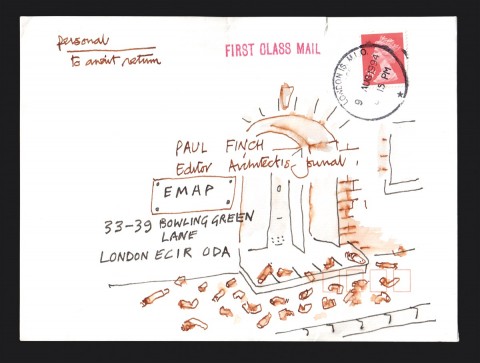 personal
to await return
FIRST CLASS MAIL
LONDON IS MIO
9 AUG 1994
15 PM
PAUL FINCH
Editor Architects Journal
EMAP
33-39 BOWLING GREEN
LANE
LONDON EC1R 0DA